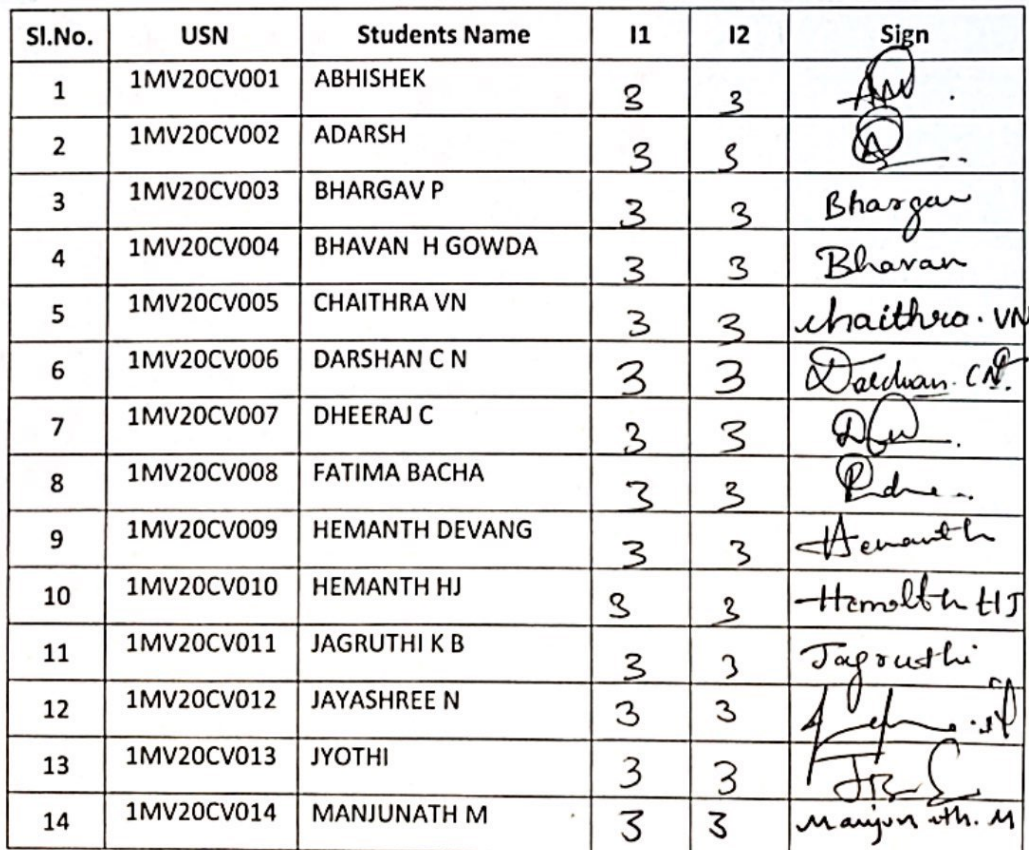 Sl.No. USN Students Name I1 I2 Sign
1 1MV20CV001 ABHISHEK 3 3
2 1MV20CV002 ADARSH 3 3
3 1MV20CV003 BHARGAV P 3 3 Bhargav
4 1MV20CV004 BHAVAN H GOWDA 3 3 Bhavan
5 1MV20CV005 CHAITHRA VN 3 3 Chaithra. VN
6 1MV20CV006 DARSHAN C N 3 3 Darshan. CN.
7 1MV20CV007 DHEERAJ C 3 3
8 1MV20CV008 FATIMA BACHA 3 3
9 1MV20CV009 HEMANTH DEVANG 3 3 Hemanth
10 1MV20CV010 HEMANTH HJ 3 3 HJ
11 1MV20CV011 JAGRUTHI K B 3 3 Jagruthi
12 1MV20CV012 JAYASHREE N 3 3
13 1MV20CV013 JYOTHI 3 3
14 1MV20CV014 MANJUNATH M 3 3 Manjunath. M